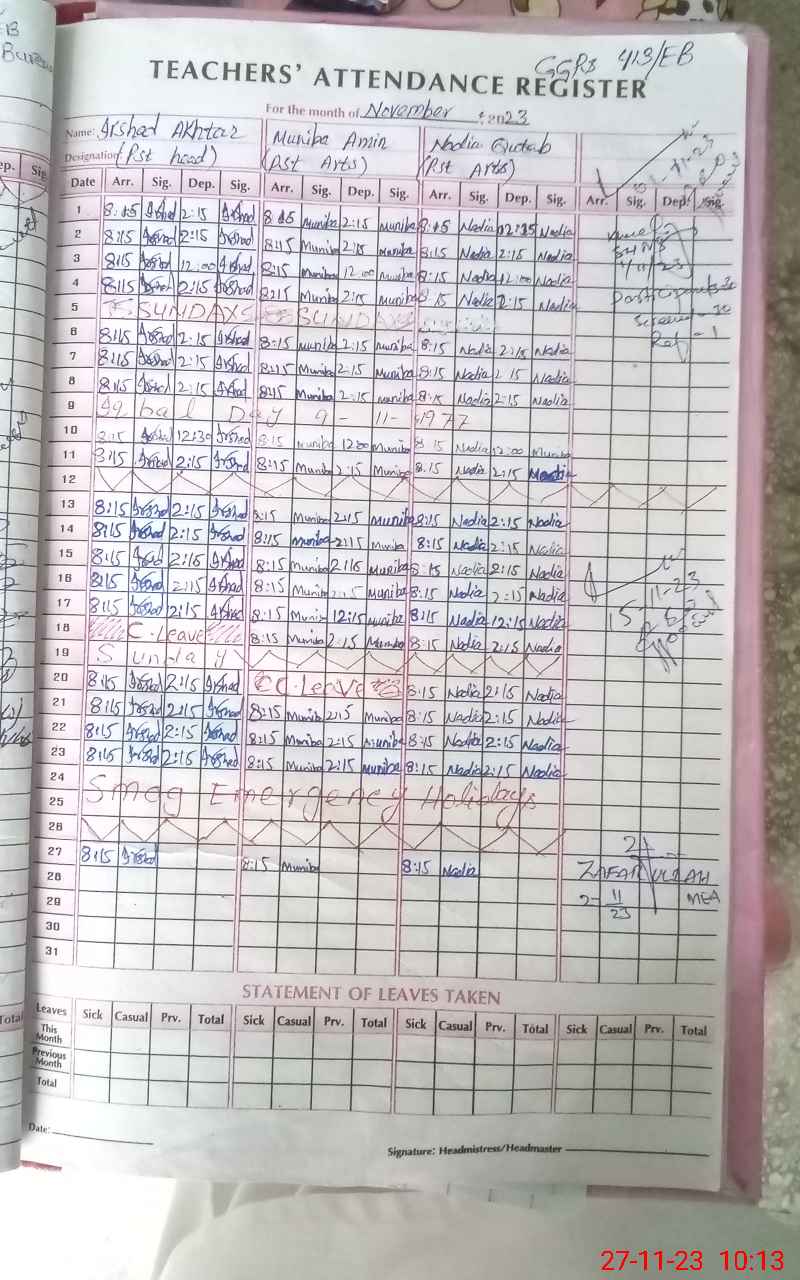 GGPS 413/EB
TEACHERS' ATTENDANCE REGISTER
For the month of November 2023
Name: Arshad Akhtar Muniba Amin Nadia Qutab
Designation (Pst head) (Pst Arts) (Pst Arts)
Date Arr. Sig. Dep. Sig. Arr. Sig. Dep. Sig. Arr. Sig. Dep. Sig. Arr. Sig. Dep. Sig.
1 8:15 Arshad 2:15 Arshad 8:15 Muniba 2:15 Muniba 8:15 Nadia 2:15 Nadia
2 8:15 Arshad 2:15 Arshad 8:15 Muniba 2:15 Muniba 8:15 Nadia 2:15 Nadia
3 8:15 Arshad 12:00 Arshad 8:15 Muniba 12:00 Muniba 8:15 Nadia 12:00 Nadia
4 8:15 Arshad 2:15 Arshad 8:15 Muniba 2:15 Muniba 8:15 Nadia 2:15 Nadia
5 SUNDAYS SUNDAYS
6 8:15 Arshad 2:15 Arshad 8:15 Muniba 2:15 Muniba 8:15 Nadia 2:15 Nadia
7 8:15 Arshad 2:15 Arshad 8:15 Muniba 2:15 Muniba 8:15 Nadia 2:15 Nadia
8 8:15 Arshad 2:15 Arshad 8:15 Muniba 2:15 Muniba 8:15 Nadia 2:15 Nadia
9 Iqbal Day 9-11-1977
10 8:15 Arshad 12:30 Arshad 8:15 Muniba 12:00 Muniba 8:15 Nadia 12:00 Muniba
11 8:15 Arshad 2:15 Arshad 8:15 Muniba 2:15 Muniba 8:15 Nadia 2:15 Nadia
12
13 8:15 Arshad 2:15 Arshad 8:15 Muniba 2:15 Muniba 8:15 Nadia 2:15 Nadia
14 8:15 Arshad 2:15 Arshad 8:15 Muniba 2:15 Muniba 8:15 Nadia 2:15 Nadia
15 8:15 Arshad 2:15 Arshad 8:15 Muniba 2:15 Muniba 8:15 Nadia 2:15 Nadia
16 8:15 Arshad 2:15 Arshad 8:15 Muniba 2:15 Muniba 8:15 Nadia 2:15 Nadia
17 8:15 Arshad 2:15 Arshad 8:15 Muniba 12:15 Muniba 8:15 Nadia 12:15 Nadia
18 C.Leave 8:15 Muniba 2:15 Muniba 8:15 Nadia 2:15 Nadia
19 Sunday
20 8:15 Arshad 2:15 Arshad C.Leave 8:15 Nadia 2:15 Nadia
21 8:15 Arshad 2:15 Arshad 8:15 Muniba 2:15 Muniba 8:15 Nadia 2:15 Nadia
22 8:15 Arshad 2:15 Arshad 8:15 Muniba 2:15 Muniba 8:15 Nadia 2:15 Nadia
23 8:15 Arshad 2:15 Arshad 8:15 Muniba 2:15 Muniba 8:15 Nadia 2:15 Nadia
24
25 Smog Emergency Holidays
26
27 8:15 Arshad 8:15 Muniba 8:15 Nadia
28
29
30
31
4/11/23
Participants 30
Screened - 30
Ref - 1
15-11-23
ZAFAR ULLAH
MEA
2-11-23
STATEMENT OF LEAVES TAKEN
Leaves Sick Casual Prv. Total Sick Casual Prv. Total Sick Casual Prv. Total Sick Casual Prv. Total
This Month
Previous Month
Total
Date:
Signature: Headmistress/Headmaster
27-11-23 10:13